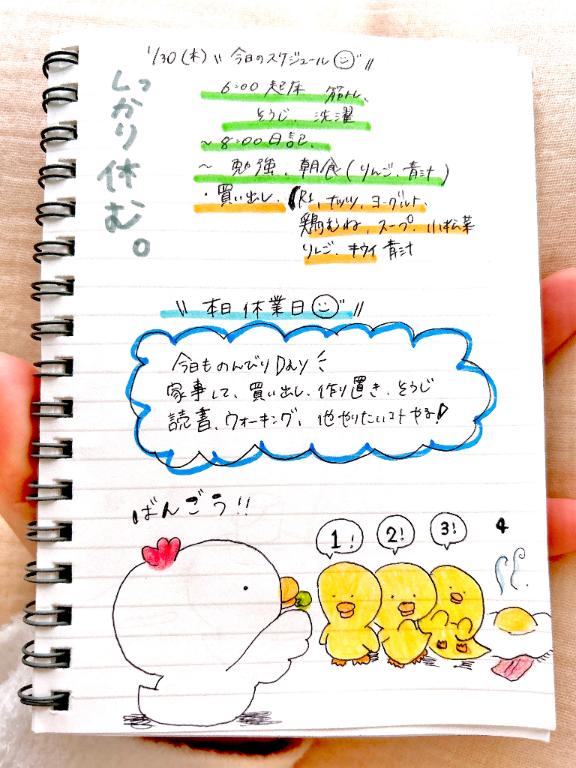 1/30(木) \\ 今日のスケジュール //
しっかり休む。
6:00 起床 筋トレ、
そうじ、洗濯
~8:00 日記、
~ 勉強、朝食(りんご、青汁)
・買い出し (R1、ナッツ、ヨーグルト、
鶏むね、スープ、小松菜
りんご、キウイ 青汁
\\ 本日 休業日 //
今日ものんびりDay
家事して、買い出し、作り置き、そうじ
読書、ウォーキング、他やりたいコトやる!
ばんごう!!
1! 2! 3! 4